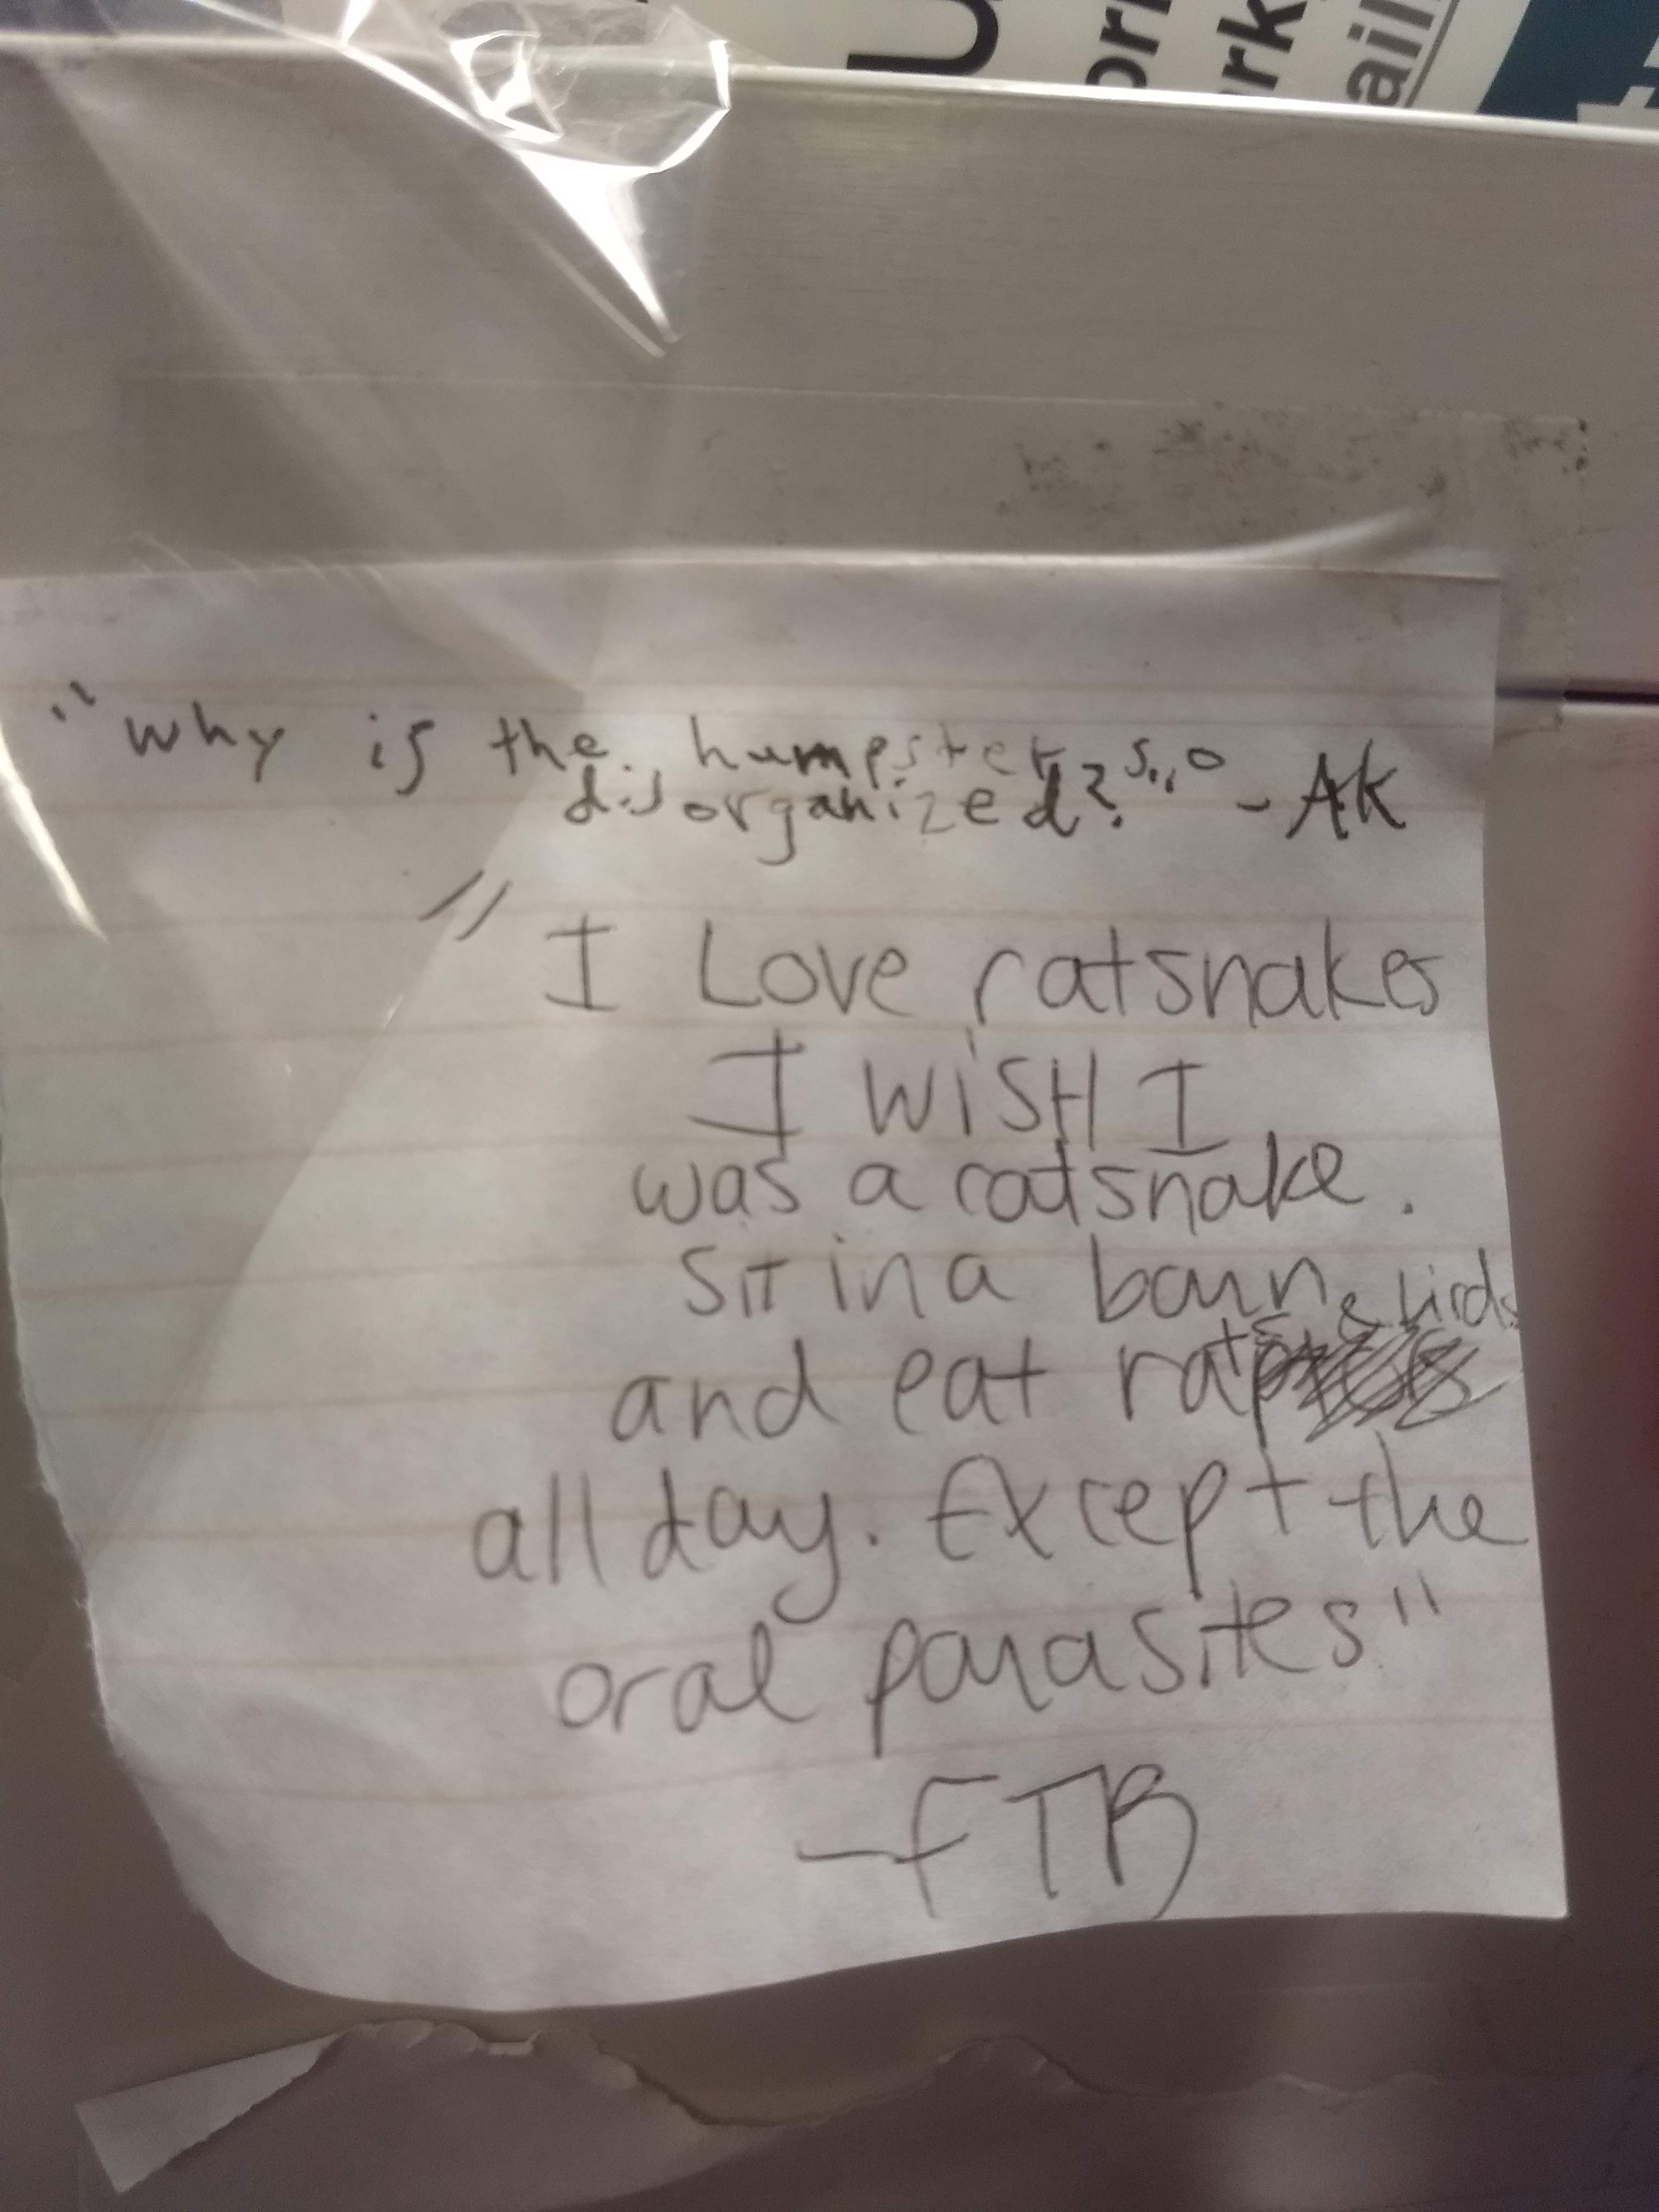 "why is the humpster so
disorganized?" - AK
"I Love ratsnakes
I WISH I
was a ratsnake.
Sit in a barn
and eat rats & birds
all day. Except the
oral parasites"
-FTB